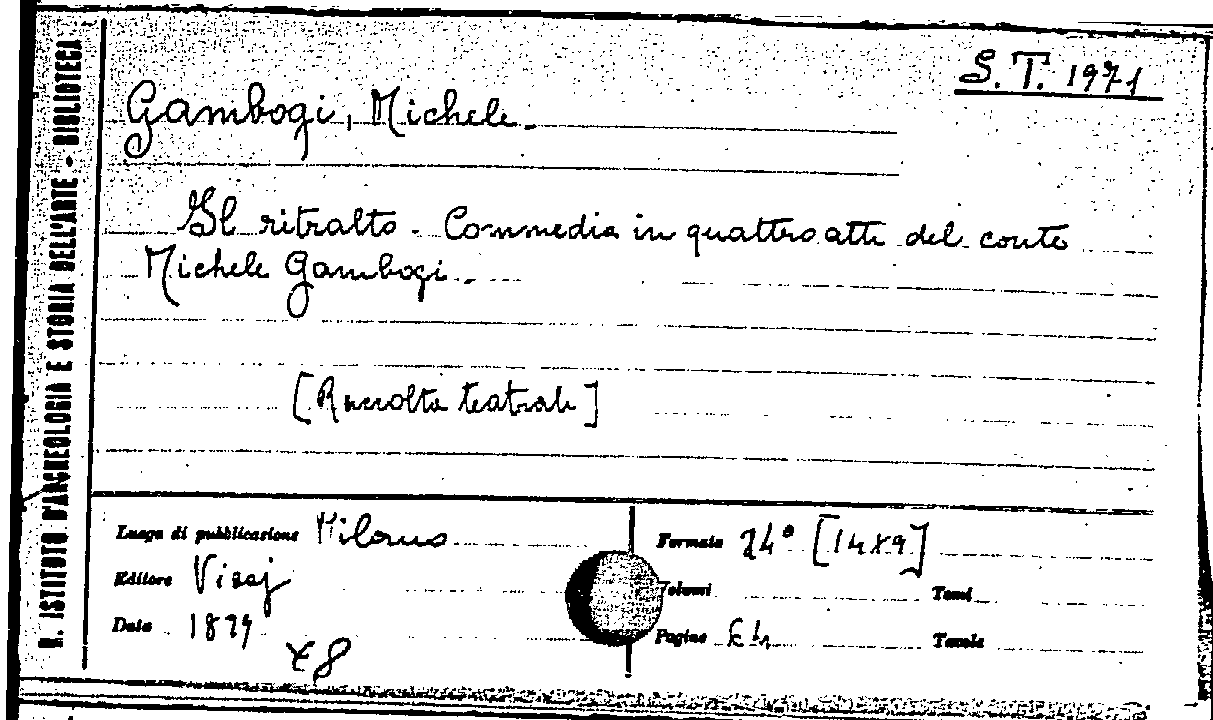 R. ISTITUTO D'ARCHEOLOGIA E STORIA DELL'ARTE - BIBLIOTECA
S. T. 1971
Gambogi, Michele.
Il ritratto. Commedia in quattro atti del conte
Michele Gambogi.
[Raccolta teatrale]
Luogo di pubblicazione Milano
Formato 24° [14x9]
Editore Visaj
Volumi Tomi
Data 1829
Pagine 64 Tavole